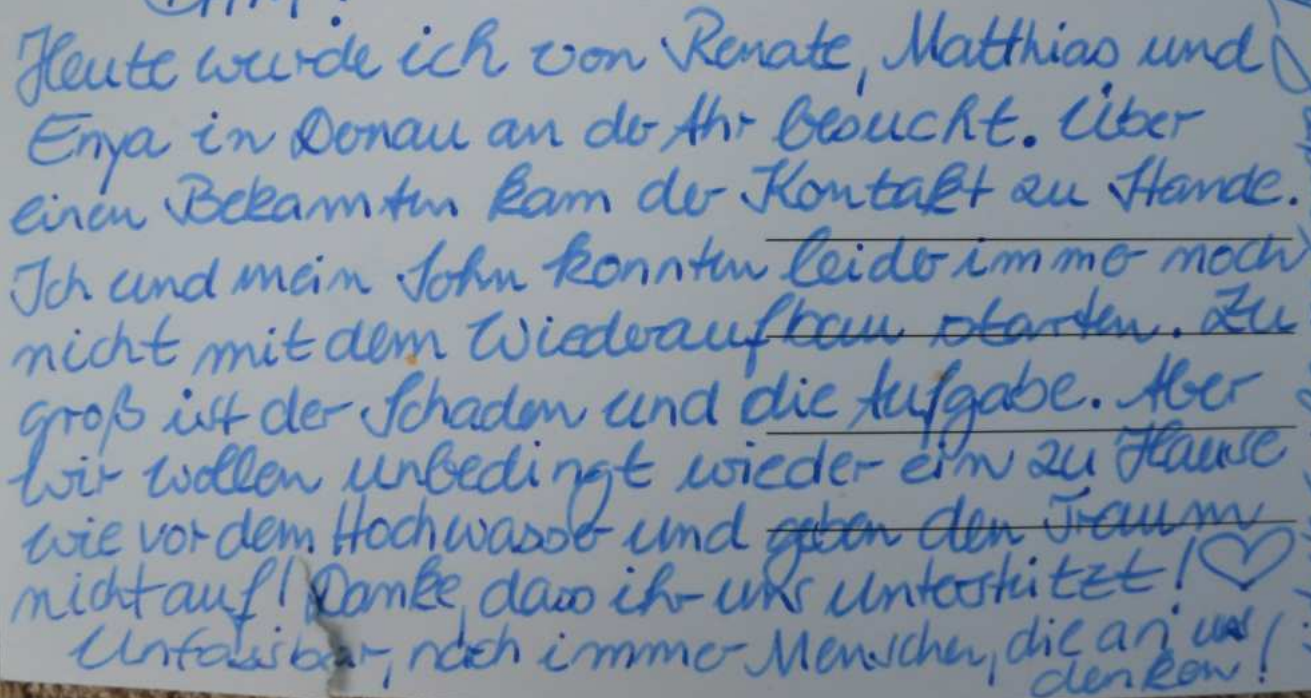 Heute wurde ich von Renate, Matthias und
Enya in Dernau an der Ahr besucht. Über
einen Bekannten kam der Kontakt zu Stande.
Ich und mein Sohn konnten leider immer noch
nicht mit dem Wiederaufbau starten. Zu
groß ist der Schaden und die Aufgabe. Aber
wir wollen unbedingt wieder ein zu Hause
wie vor dem Hochwasser und geben den Traum
nicht auf! Danke, dass ihr uns unterstützt! ♡
Unfassbar, noch immer Menschen, die an uns
denken!